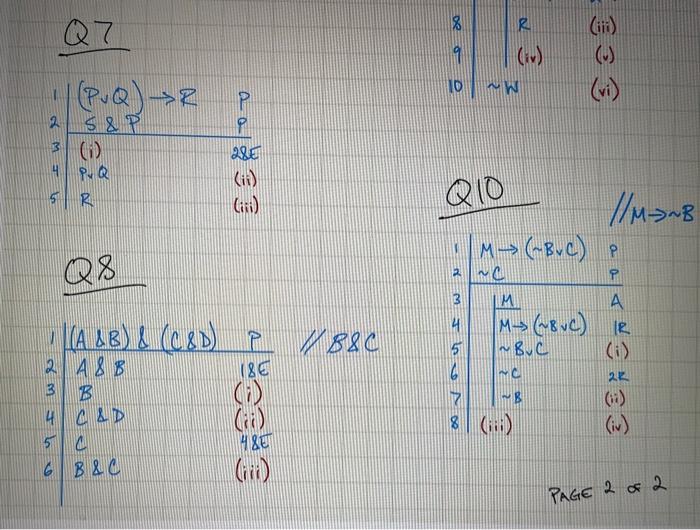 Q7
1 (PvQ) → R P
2 S & P P
3 (i) 2&E
4 PvQ (ii)
5 R (iii)
Q8
1 (A & B) & (C & D) P // B & C
2 A & B 1&E
3 B (i)
4 C & D (ii)
5 C 4&E
6 B & C (iii)
8 R (iii)
9 (iv) (v)
10 ~W (vi)
Q10
// M → ~B
1 M → (~BvC) P
2 ~C P
3 M A
4 M → (~BvC) 1R
5 ~BvC (i)
6 ~C 2R
7 ~B (ii)
8 (iii) (iv)
PAGE 2 OF 2